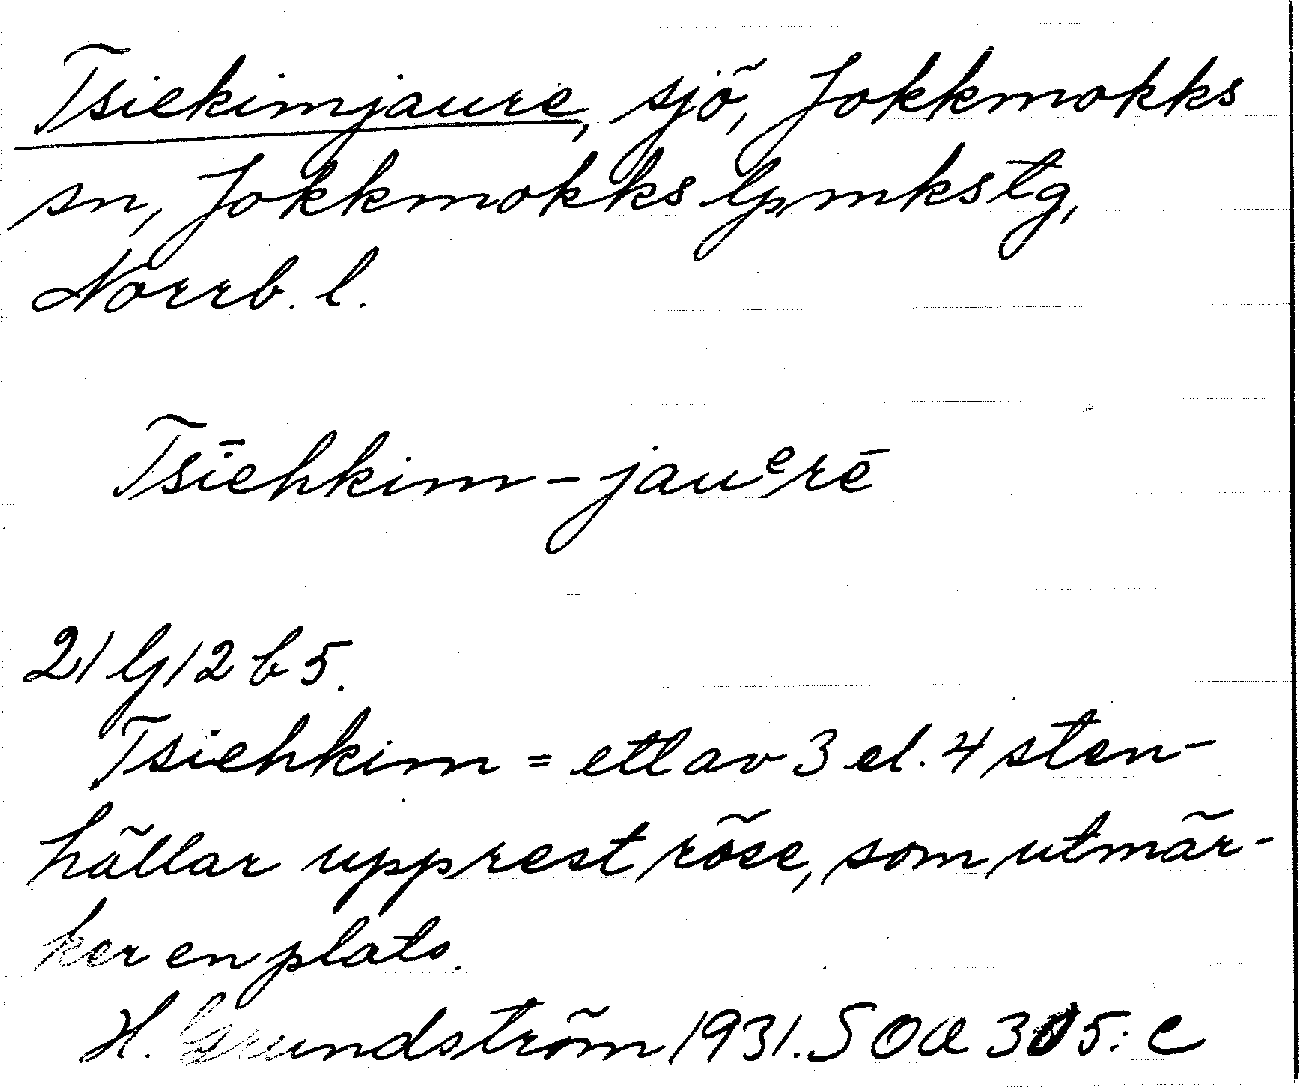 Tsiekimjaure, sjö, Jokkmokks
sn, Jokkmokks lpmkstg,
Norrb. l.
Tsīehkim-jauᵉrē
21 G 12 b 5.
Tsiehkim = ett av 3 el. 4 sten-
hällar upprest röse, som utmär-
ker en plats.
H. Grundström 1931. SOA 305: c